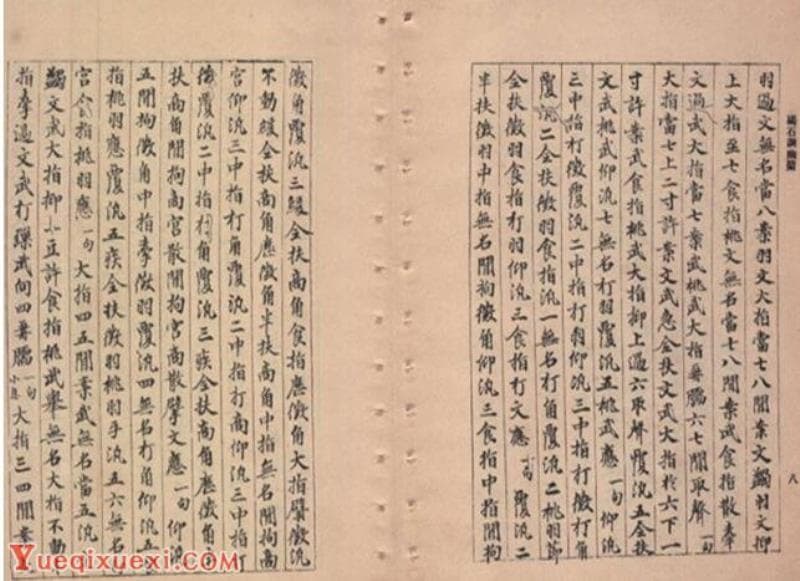 碣石調幽蘭
羽過文無名當八案羽文大指當七八間案文蠲羽文抑
上大指至七食指挑文無名當七八間案武食指散牽
文過武大指當七案武挑武大指蹙臑六七間取聲一句
大指當七上二寸許案文武急全扶文武大指於六下一
寸許案武食指挑武大指抑上過六取聲覆泛五全扶
文武挑武仰泛七無名打羽覆泛五挑武應一句仰泛
三中指打徵覆泛二中指打羽仰泛三中指打徵打角
覆泛二全扶徵羽食指泛一無名打角覆泛二挑羽節
全扶徵羽食指打羽仰泛三食指打文應一句覆泛二
半扶徵羽中指無名間拘徵角仰泛三食指中指間拘
八
徵角覆泛三緩全扶商角食指應徵角大指擘徵泛
不動緩全扶商角應徵角半扶商角中指無名間拘商
宮仰泛三中指打角覆泛二中指打商仰泛三中指打
徵覆泛二中指打角覆泛三疾全扶商角應徵角
扶商角間拘商宮散間拘宮商散擘文應一句仰泛
五間拘徵角中指牽徵羽覆泛四無名打角仰泛五
指挑羽應覆泛五疾全扶徵羽挑羽乎泛五六無名
宮食指挑羽應一句大指四五間案武無名當五泛
蠲文武大指抑小豆許食指挑武舉無名大指不動
指牽過文武打擽武向四蹙臑一句小息大指三四間案
Yueqixuexi.com